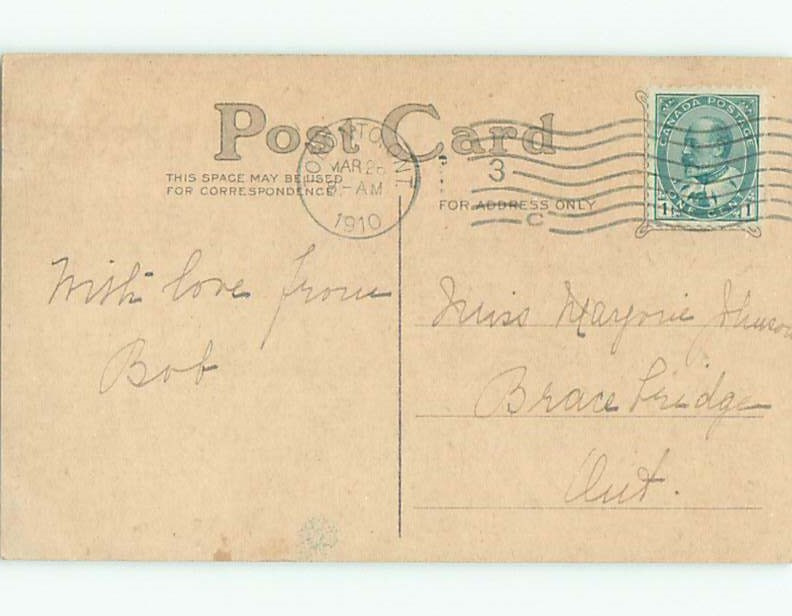 Post Card
THIS SPACE MAY BE USED
FOR CORRESPONDENCE
FOR ADDRESS ONLY
TORONTO, ONT
MAR 26
8-AM
1910
3
C
CANADA POSTAGE
1 ONE CENT 1
With love from
Bob
Miss Marjorie Johnson
Bracebridge
Ont.